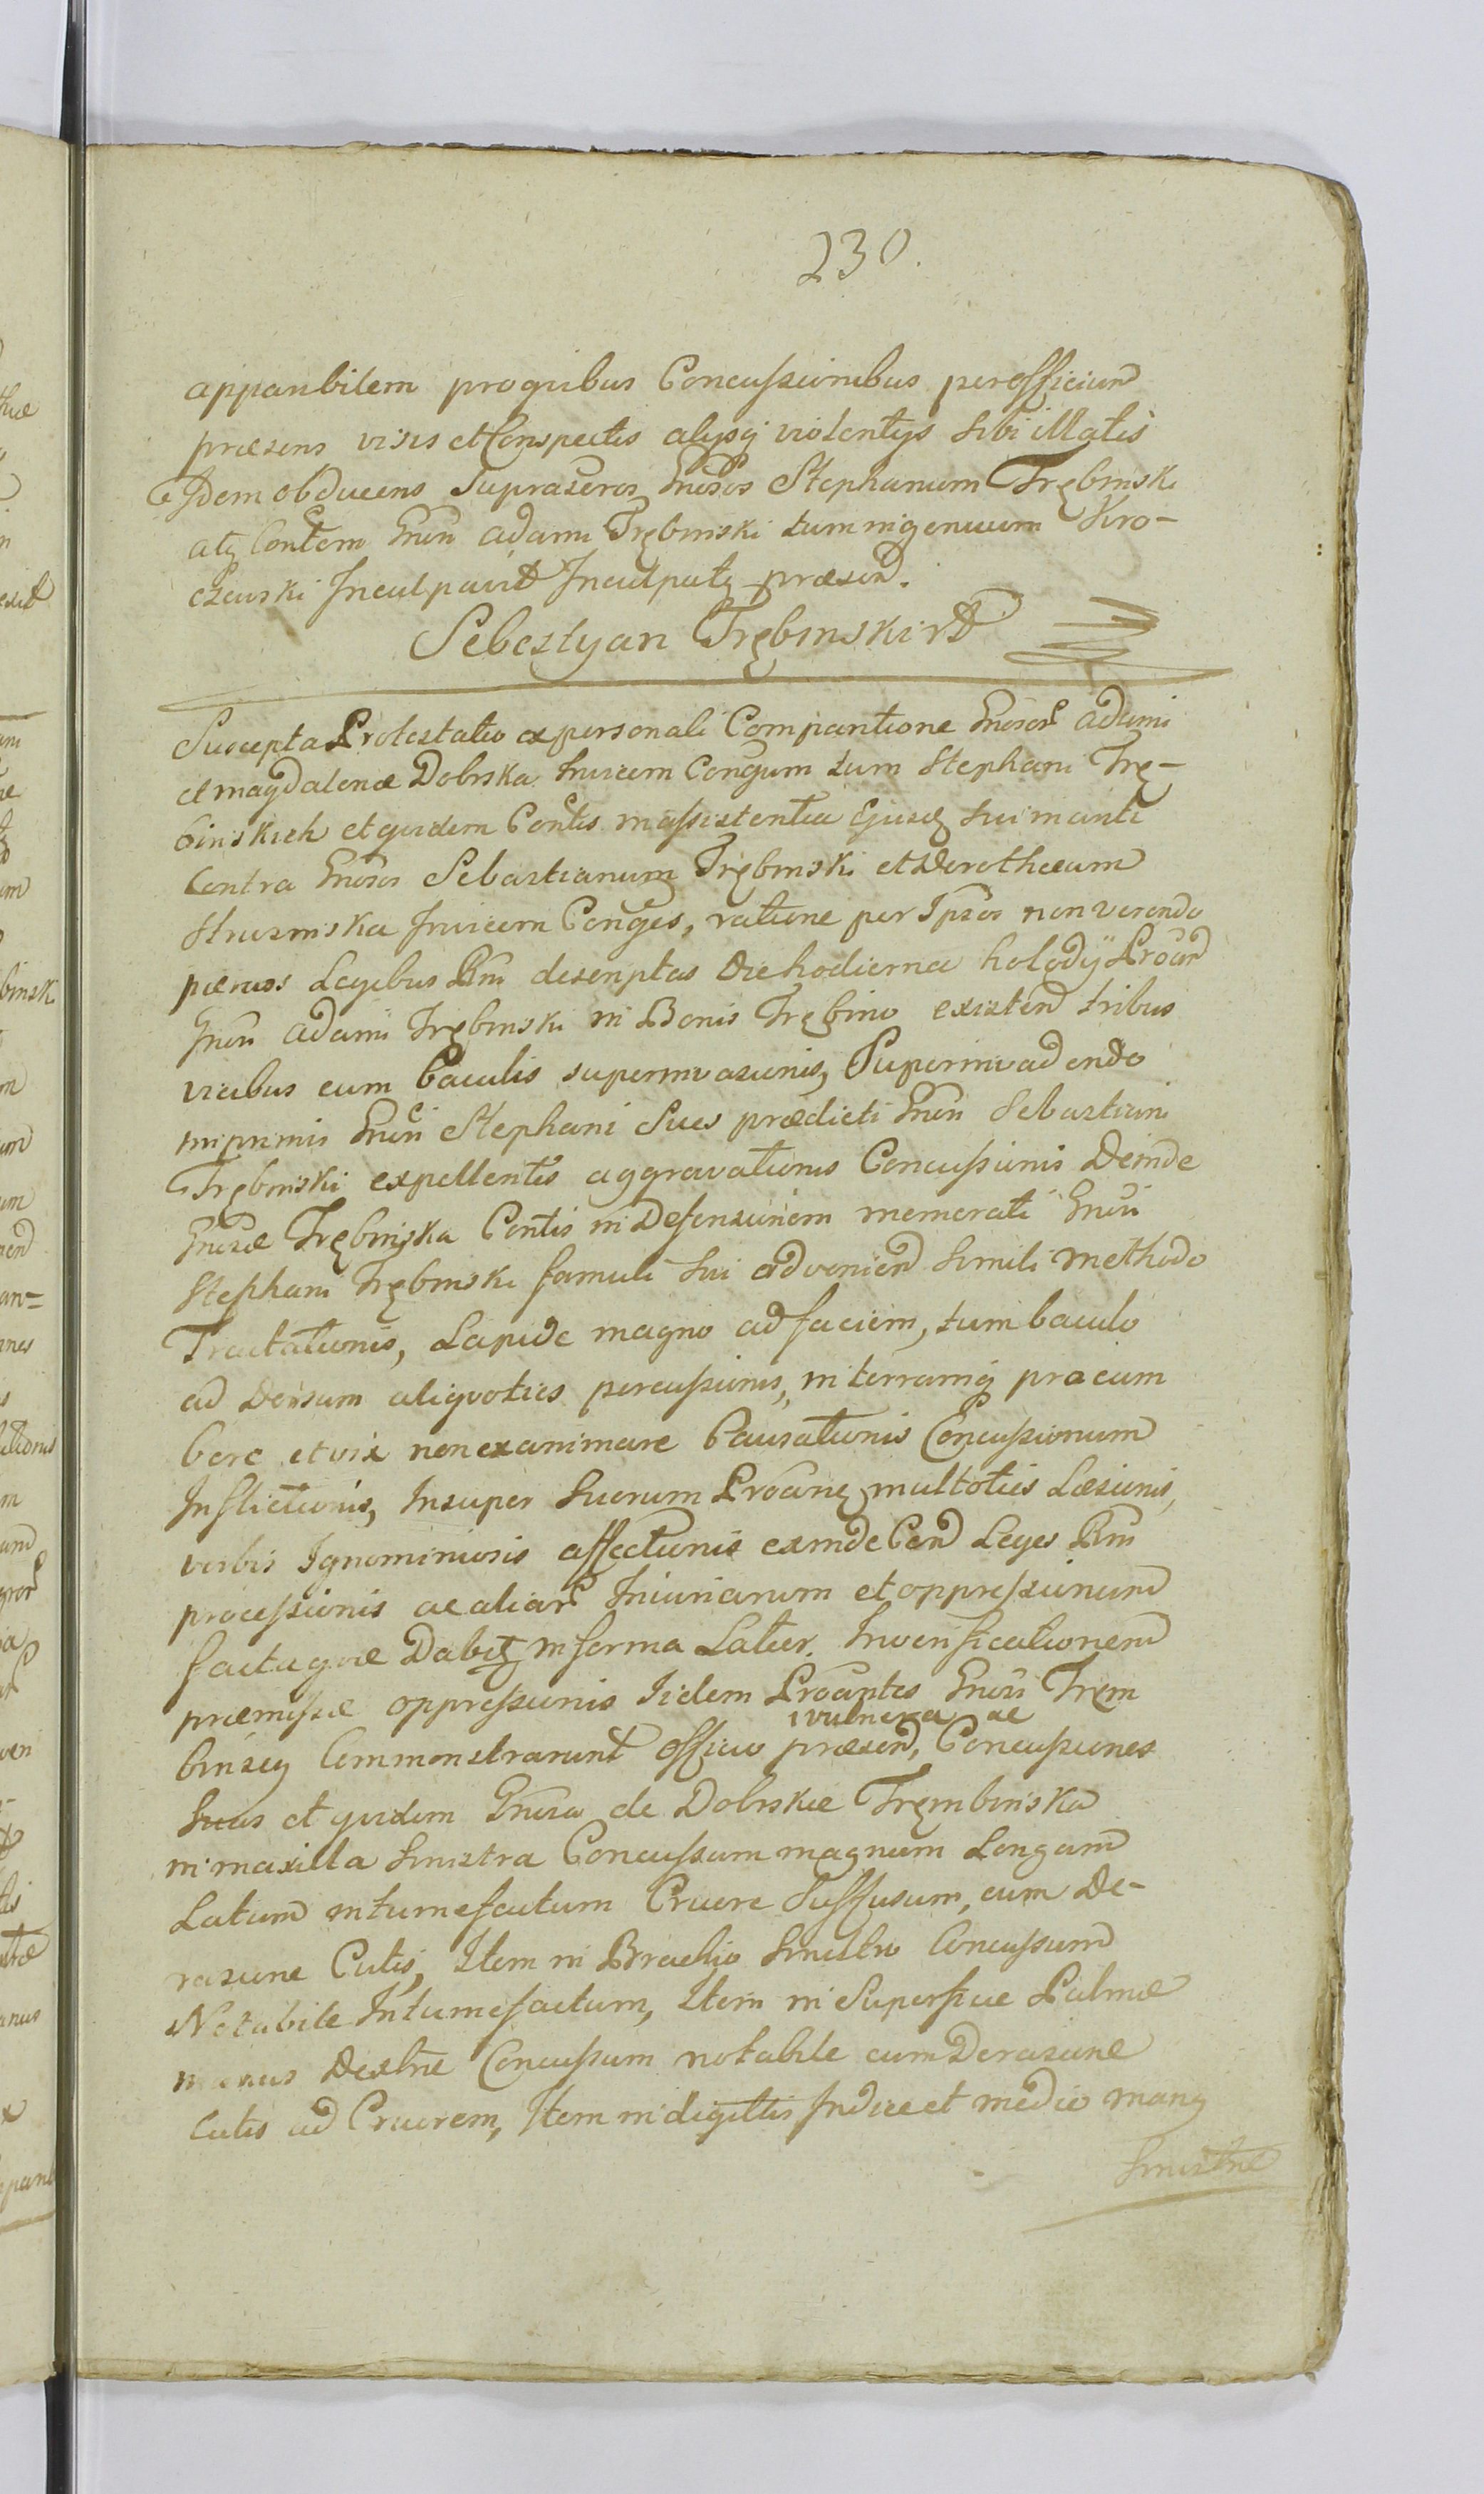 230.
apparibilem pro quibus Concussionibus per officium
præsens visis et Conspectis alysq violentys sibi illatis
Idem obducens Suprascros Gnosos Stephanum Trębinski
atq Contem Gnsi Adami Trębinski tum ingenuum Kro-
czewski Inculpavit Inculpatq præsen.
Sebestyan Trębinski
Suscepta Protestatio ex personali Comparitione Gnosor Adami
et Magdalenæ Dobrska Invicem Congum tum Stephani Trę-
binskich et quidem Contis in assistentia Ejusd sui mariti
Contra Gnosos Sebastianum Trębinski et Dorotheam
Struzinska Invicem Conges, ratione per Ipsos non verendo
pænas Legibus Rni descriptas Die hodierna
Gnsi Adami Trębinski in Bonis Trębino existen tribus
vicibus cum baculis superinvasionis, Superinvadendo
inprimis Gnsi Stephani Sues prædicti Gnsi Sebastiani
Trębinski expellentis aggravationis Concussionis Deinde
Gnsæ Trębinska Contis in Defensionem memorati Gnsi
Stephani Trębinski famuli sui advenien simili methodo
Tractationis, Lapide magno ad faciem, tum baculo
ad Dorsum aliquoties percussionis, in terramq procum
bere et vix non exanimare Causationis Concussionum
Inflictionis, Insuper Suorum Proang multoties Læsionis,
verbis Ignominiosis affectionis exinde Con Leges Rni
processionis ac aliar Iniuriarum et oppressionum
factaque Dabit in forma Latior. In verificationem
præmissæ oppressionis Iidem Proantes Gnosi Trem
binscy Commonstrarunt officio præsen, vulnera ac Concussiones
suas et quidem Gnosa de Dobrskie Trembinska
in maxilla sinistra Concussum magnum Longum
Latum intumefactum Cruore Suffusum, cum De-
rasione Cutis, Item in Brachio Sinistro Concussum
Notabile Intumefactum, Item in Superficie Palmæ
manus Dextræ Concussum notabile cum Derasione
Cutis ad Cruorem, Item in digittis Indice et medio manq
Sinistræ